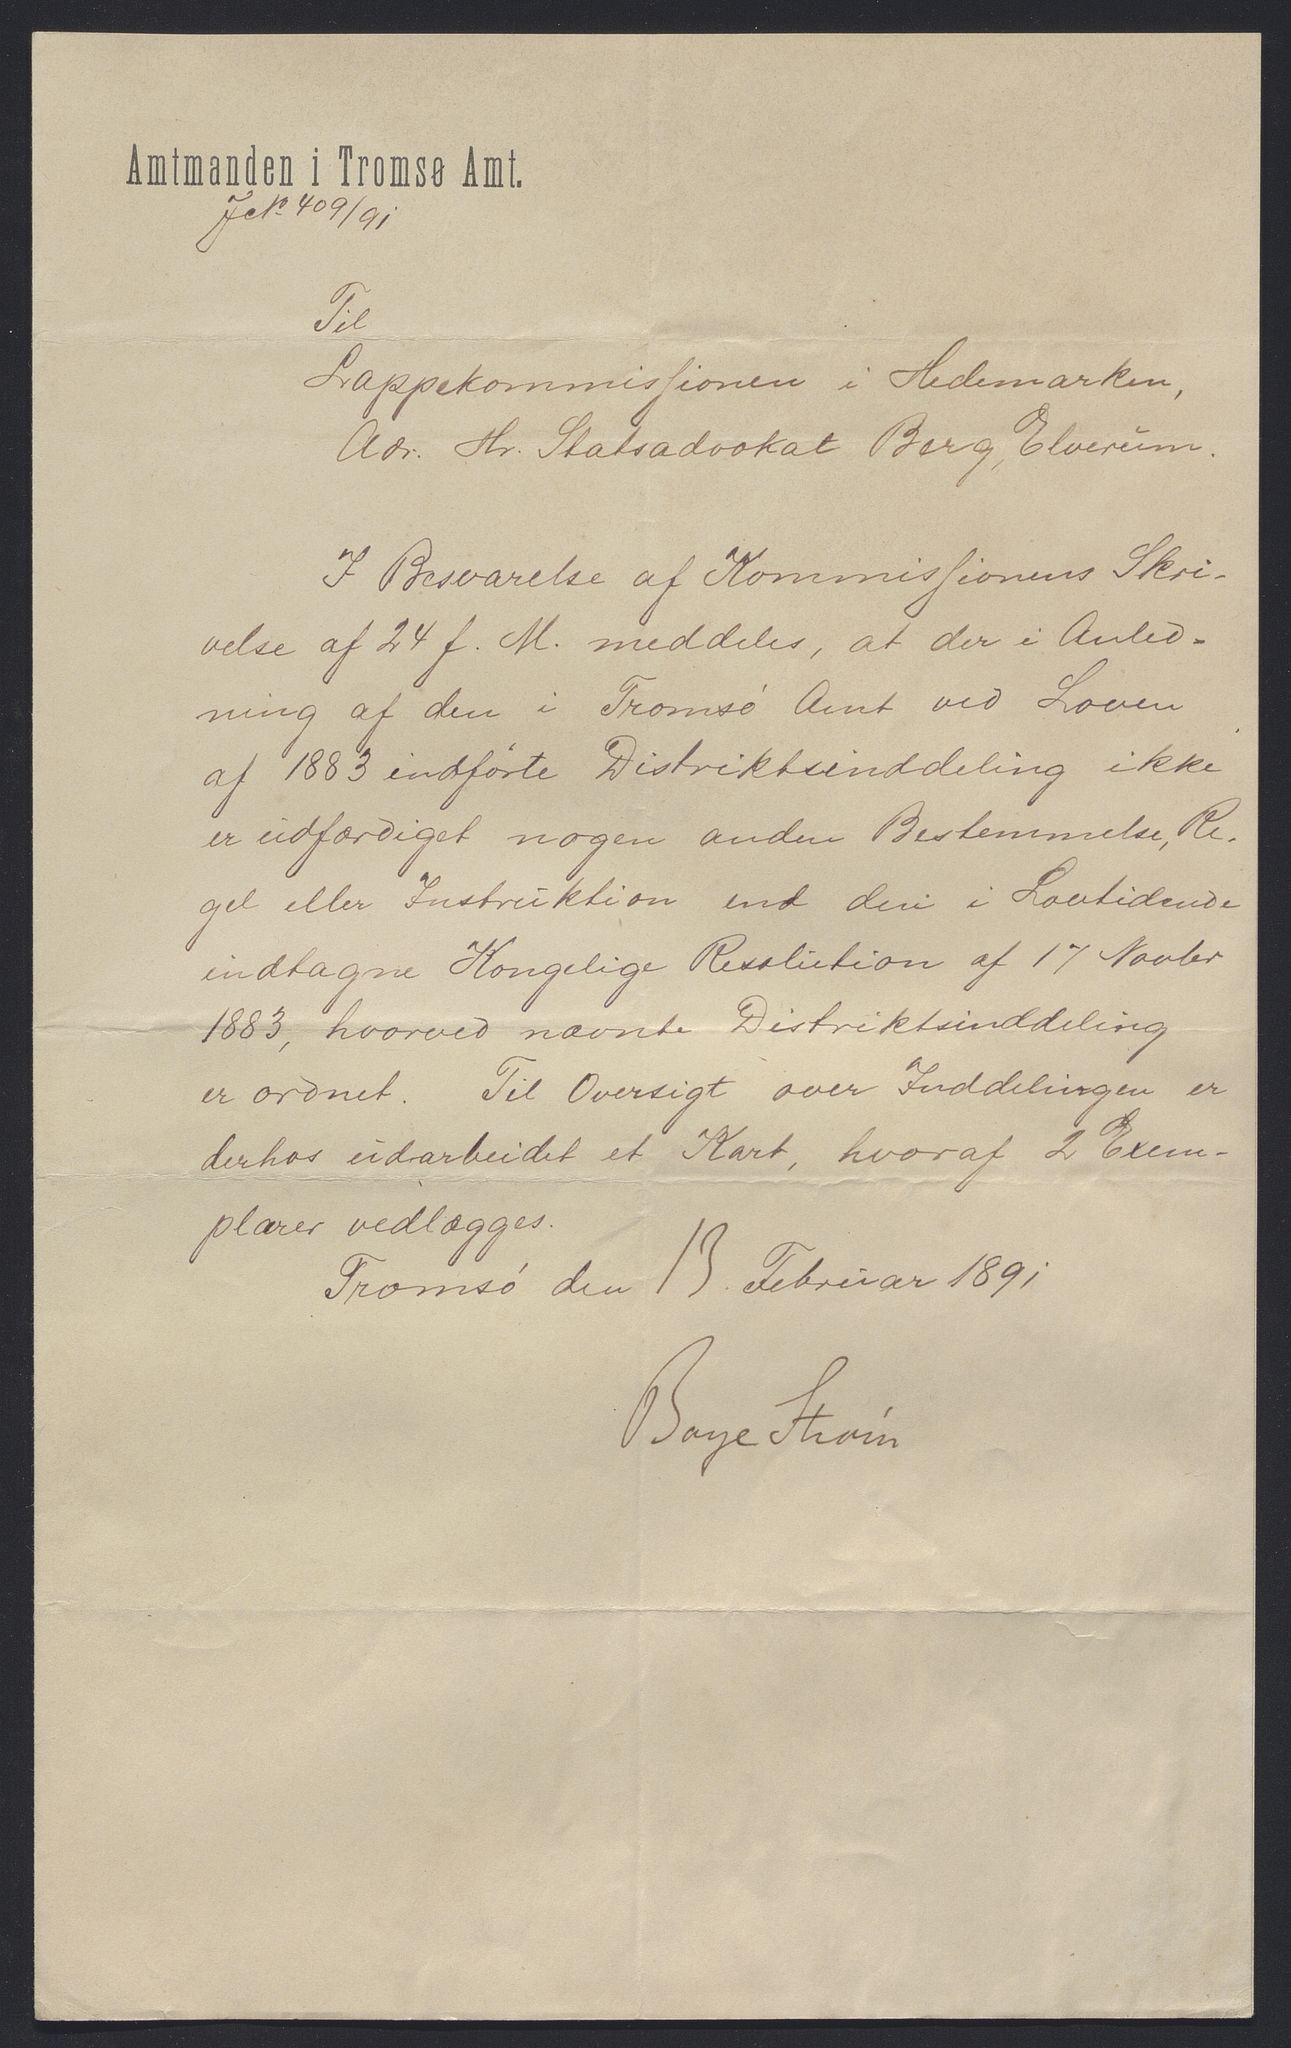 Amtmanden i Tromsø Amt.
J. No 409/91
Til
Lappekommissionen i Hedemarken,
Adr. Hr. Statsadvokat Berg, Elverum.
I Besvarelse af Kommissionens Skri-
velse af 24 f. M. meddeles, at der i Anled-
ning af den i Tromsø Amt ved Loven
af 1883 indførte Distriktsinddeling ikke
er udfærdiget nogen anden Bestemmelse, Re-
gel eller Instruktion end den i Lovtidende
indtagne Kongelige Resolution af 17 Novbr
1883, hvorved nævnte Distriktsinddeling
er ordnet. Til Oversigt over Inddelingen er
derhos udarbeidet et Kart, hvoraf 2 Exem-
plarer vedlægges.
Tromsø den 13. Februar 1891
Boye Strøm